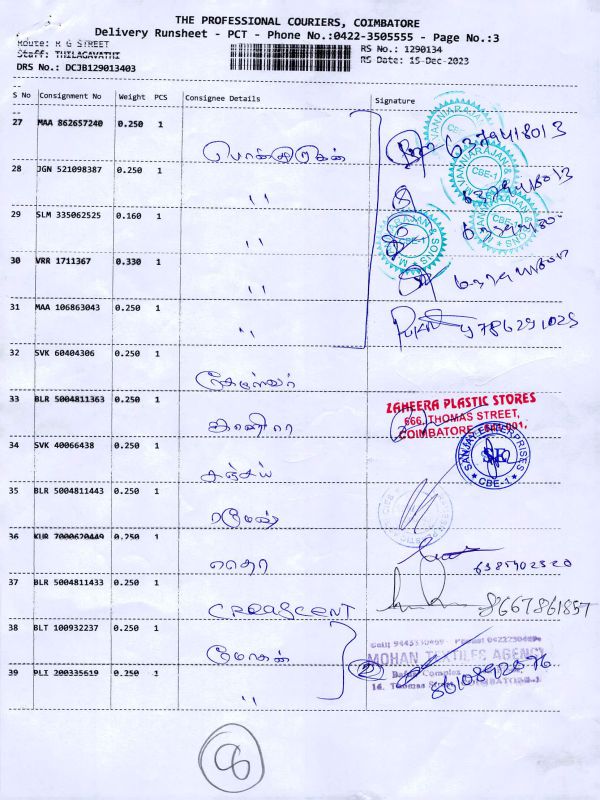 THE PROFESSIONAL COURIERS, COIMBATORE
Delivery Runsheet - PCT - Phone No.:0422-3505555 - Page No.:3
Route: M G STREET
RS No.: 1290134
Staff: THILAGAVATHI
RS Date: 15-Dec-2023
DRS No.: DCJB129013403
S No Consignment No Weight PCS Consignee Details Signature
27 MAA 862657240 0.250 1
28 JGN 521098387 0.250 1
,,
29 SLM 335062525 0.160 1
,,
30 VRR 1711367 0.330 1
,,
31 MAA 106863043 0.250 1
,,
9786291025
32 SVK 60404306 0.250 1
33 BLR 5004811363 0.250 1
ZAHEERA PLASTIC STORES
666, THOMAS STREET,
COIMBATORE - 641 001.
34 SVK 40066438 0.250 1
சஞ்சய்
SANJAY ENTERPRISES
SE
CBE-1
35 BLR 5004811443 0.250 1
ரமேஷ்
36 KUR 7000620449 0.250 1
37 BLR 5004811433 0.250 1
CREASCENT
8667861857
38 BLT 100932237 0.250 1
மோகன்
MOHAN TEXTILES AGENCY
39 PLI 200335619 0.250 1
,,
2
8610892876
14. Thomas Street
8